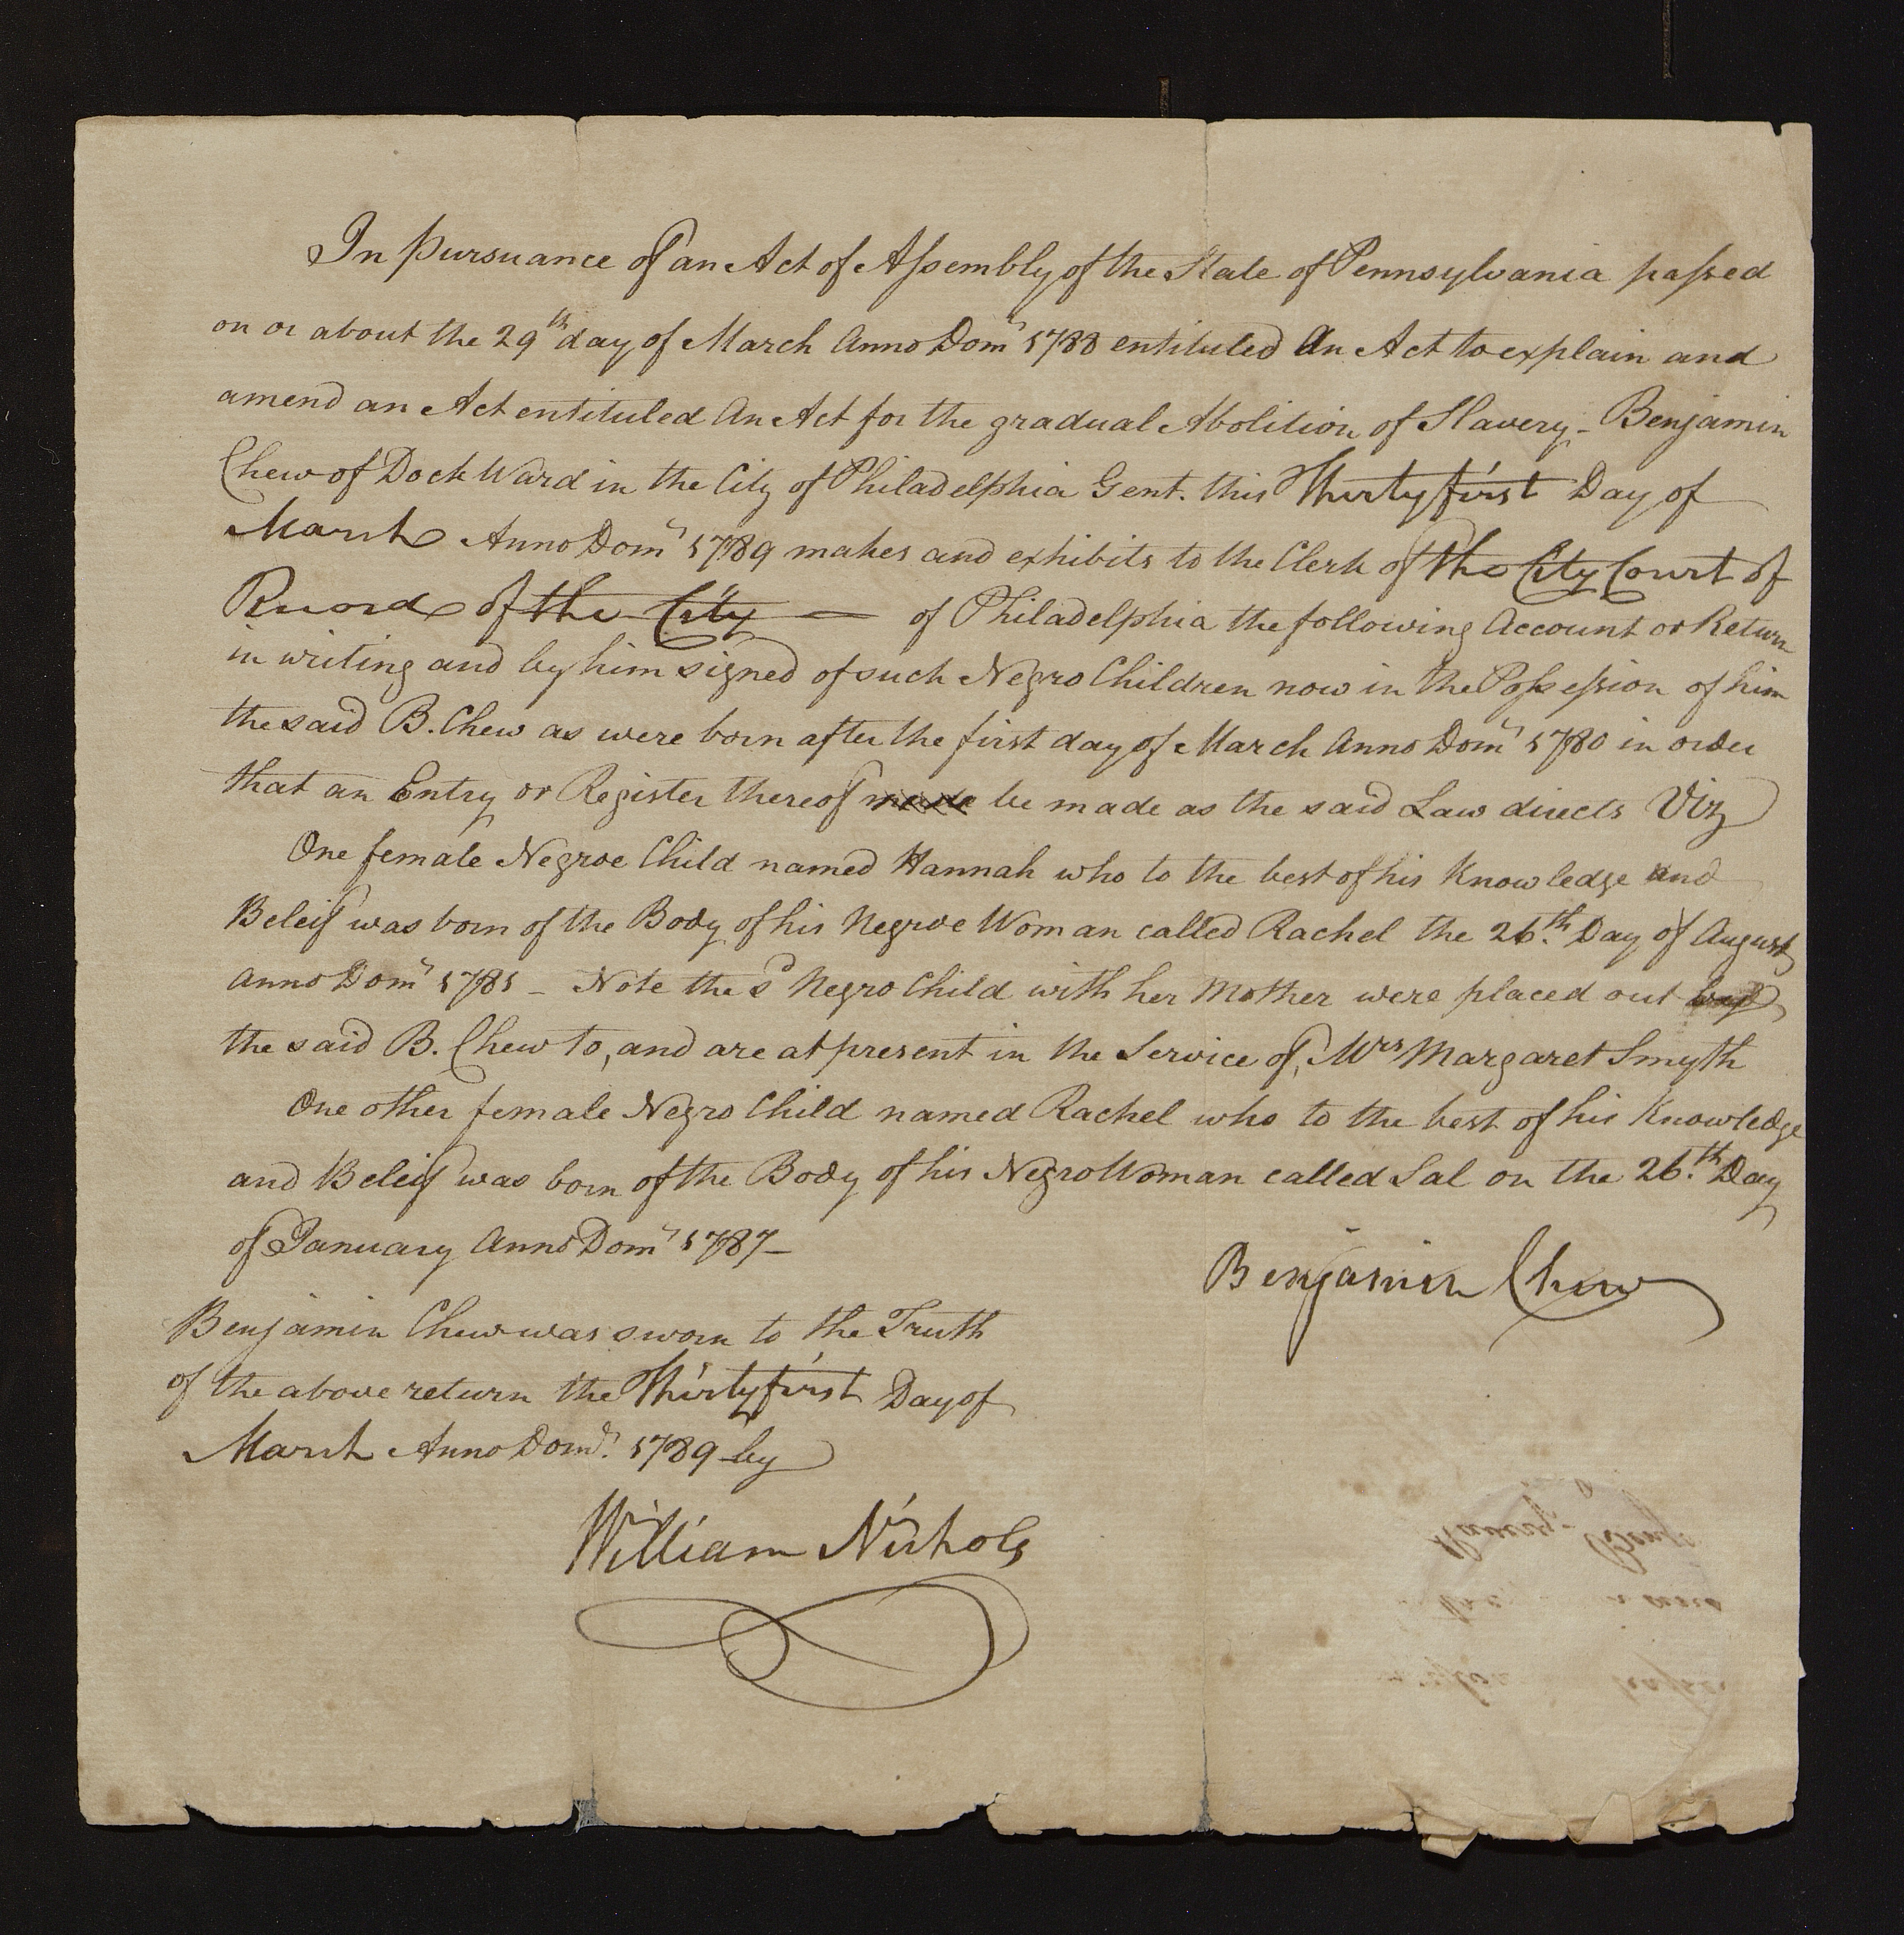 In Pursuance of an Act of Assembly of the State of Pennsylvania passed
on or about the 29th day of March Anno Domi 1788 entituled An Act to explain and
amend an Act entituled An Act for the gradual Abolition of Slavery - Benjamin
Chew of Dock Ward in the City of Philadelphia Gent. this Thirty first Day of
March Anno Domi 1789 makes and exhibits to the Clerk of the City Court of
Record of the City — of Philadelphia the following Account or Return
in writing and by him signed of such Negro Children now in the Possession of him
the said B. Chew as were born after the first day of March Anno Domi 1780 in order
that an Entry or Register thereof made be made as the said Law directs Viz
One female Negroe Child named Hannah who to the best of his Knowledge and
Beleif was born of the Body of his Negroe Woman called Rachel the 26th. Day of August
Anno Domi 1785 - Note the sd Negro Child with her Mother were placed out by
the said B. Chew to, and are at present in the Service of, Mrs Margaret Smyth
One other female Negro Child named Rachel who to the best of his Knowledge
and Beleif was born of the Body of his Negro Woman called Sal on the 26.th Day
of January Anno Domi 1787 -
Benjamin Chew
Benjamin Chew was sworn to the Truth
of the above return the Thirty first Day of
March Anno Domi. 1789 by
William Nichols